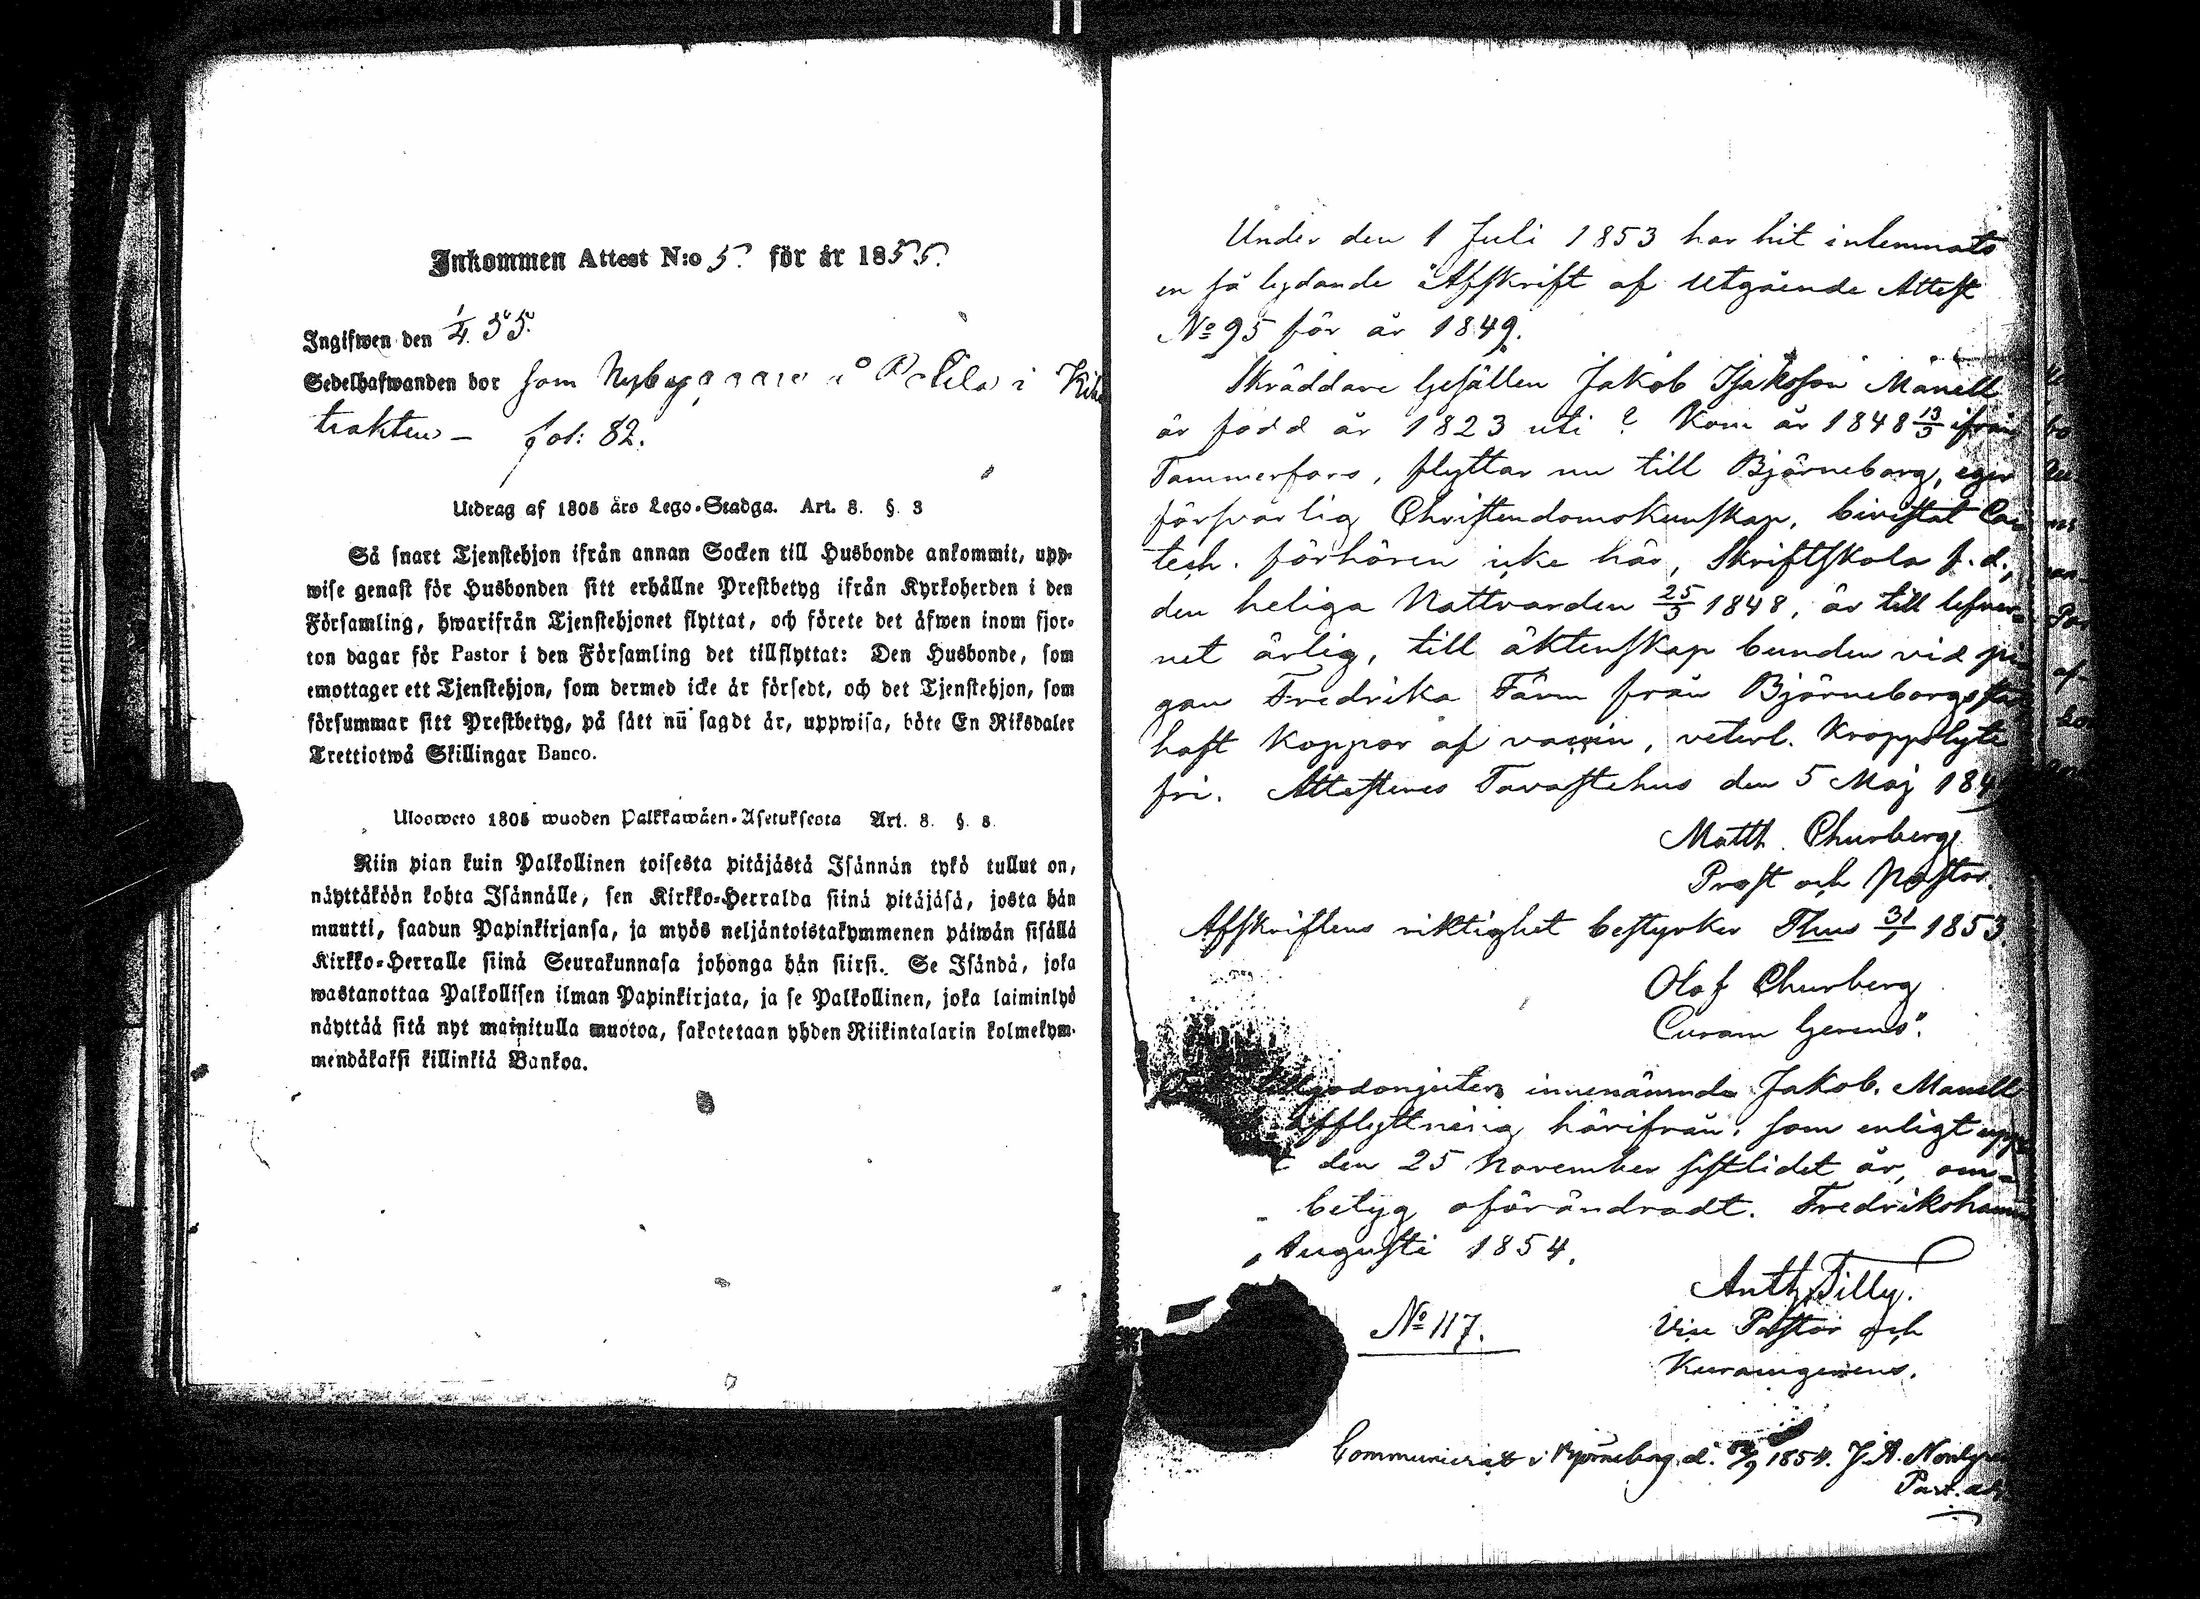 Inkommen Attest N:o 5. för år 1855.
Ingifwen den 1/4 55.
Sedelhafwanden bor som Nybyggare å i
trakten – fol: 82.
Utdrag af 1805 års Lego-Stadga. Art. 8. §. 3
Så snart Tjenstehjon ifrån annan Socken till Husbonde ankommit, upp-
wise genast för Husbonden sitt erhållne Prestbetyg ifrån Kyrkoherden i den
Församling, hwarifrån Tjenstehjonet flyttat, och förete det äfwen inom fjor-
ton dagar för Pastor i den Församling det tillflyttat: Den Husbonde, som
emottager ett Tjenstehjon, som dermed icke är försedt, och det Tjenstehjon, som
försummar sitt Prestbetyg, på sätt nu sagdt är, uppwisa, böte En Riksdaler
Trettiotwå Skillingar Banco.
Ulosweto 1805 wuoden Palkkawäen-Asetuksesta Art. 8. §. 8.
Niin pian kuin Palkollinen toisesta pitäjästä Isännän tykö tullut on,
näyttäköön kohta Isännälle, sen Kirkko-Herralda siinä pitäjäsä, josta hän
muutti, saadun Papinkirjansa, ja myös neljäntoistakymmenen päiwän sisällä
Kirkko-Herralle siinä Seurakunnasa johonga hän siirsi. Se Isändä, joka
wastanottaa Palkollisen ilman Papinkirjata, ja se Palkollinen, joka laiminlyö
näyttää sitä nyt mainitulla muotoa, sakotetaan yhden Riikintalarin kolmekym-
mendäkaksi killinkiä Bankoa.
Under den 1 Juli 1853 har hit inlemnats
en så lydande "Afskrift af Utgående Attest
No 95 för år 1849.
Skräddare Gesällen Jakob Isaksson Manell
är född år 1823 uti ? Kom år 1848 13/3 ifrån
Tammerfors, flyttar nu till Björneborg, eger
försvarlig Christendomskunskap, bivistat Ca
tech. förhören icke här, Skriftskola f. d.,
den heliga Nattvarden 25/3 1848, är till lefver-
net ärlig, till äktenskap bunden vid pi
gan Fredrika Färm från Björneborgs
haft Koppor af vaccin, veterl. Kroppslyte
fri. Attesteres Tavastehus den 5 Maj 184
Matth. Churberg
Prost och Pastor.
Afskriftens riktighet bestyrker Thus 31/1 1853.
Olof Churberg
Curam Gerens".
innenämnde Jakob Manell
afflyttning härifrån, som enligt upp
den 25 November sistlidet år, om-
betyg oförändradt. Fredrikshamn
Augusti 1854.
Anth. Tilly.
No 117.
Vice Pastor och
Kuramgerens.
Communicerat i Björneborg d. 1854. J. A.
Past. adj